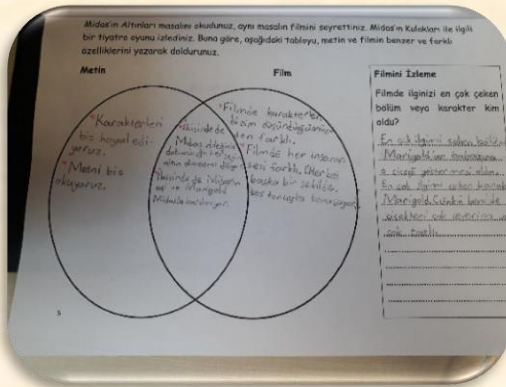 Midas'ın Altınları masalını okudunuz, aynı masalın filmini seyrettiniz. Midas'ın Kulakları ile ilgili
bir tiyatro oyunu izlediniz. Buna göre, aşağıdaki tabloyu, metin ve filmin benzer ve farklı
özelliklerini yazarak doldurunuz.
Metin
Film
* Karakterleri
biz hayal edi-
yoruz.
* Metni biz
okuyoruz.
* İkisinde de
Midas
altın
İkisinde de
ve Marigold
* Filmde karakterler
bizim düşündüğümüz-
den farklı.
* Filmde her insanın
sesi farklı. (Herkes
başka bir şekilde,
ses tonuyla konuşuyor.
Filmini İzleme
Filmde ilginizi en çok çeken
bölüm veya karakter kim
oldu?
En çok ilgimi çeken bölüm
Marigold'un babasına
o çiçeği göstermesi oldu.
En çok ilgimi çeken karakter
Marigold. Çünkü ben de
çiçekleri çok severim
çok
5